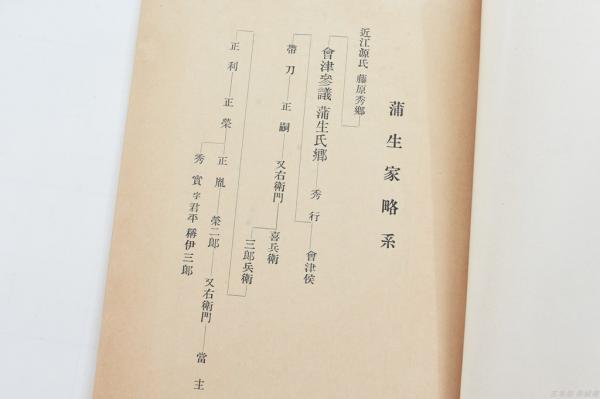 蒲生家略系
近江源氏 藤原秀鄕
會津參議 蒲生氏鄕 秀行 會津侯
帶刀 正嗣 又右衞門 喜兵衞
三郎兵衞
正利 正榮 正胤 榮二郎 又右衞門 當主
秀實 字君平 稱伊三郎